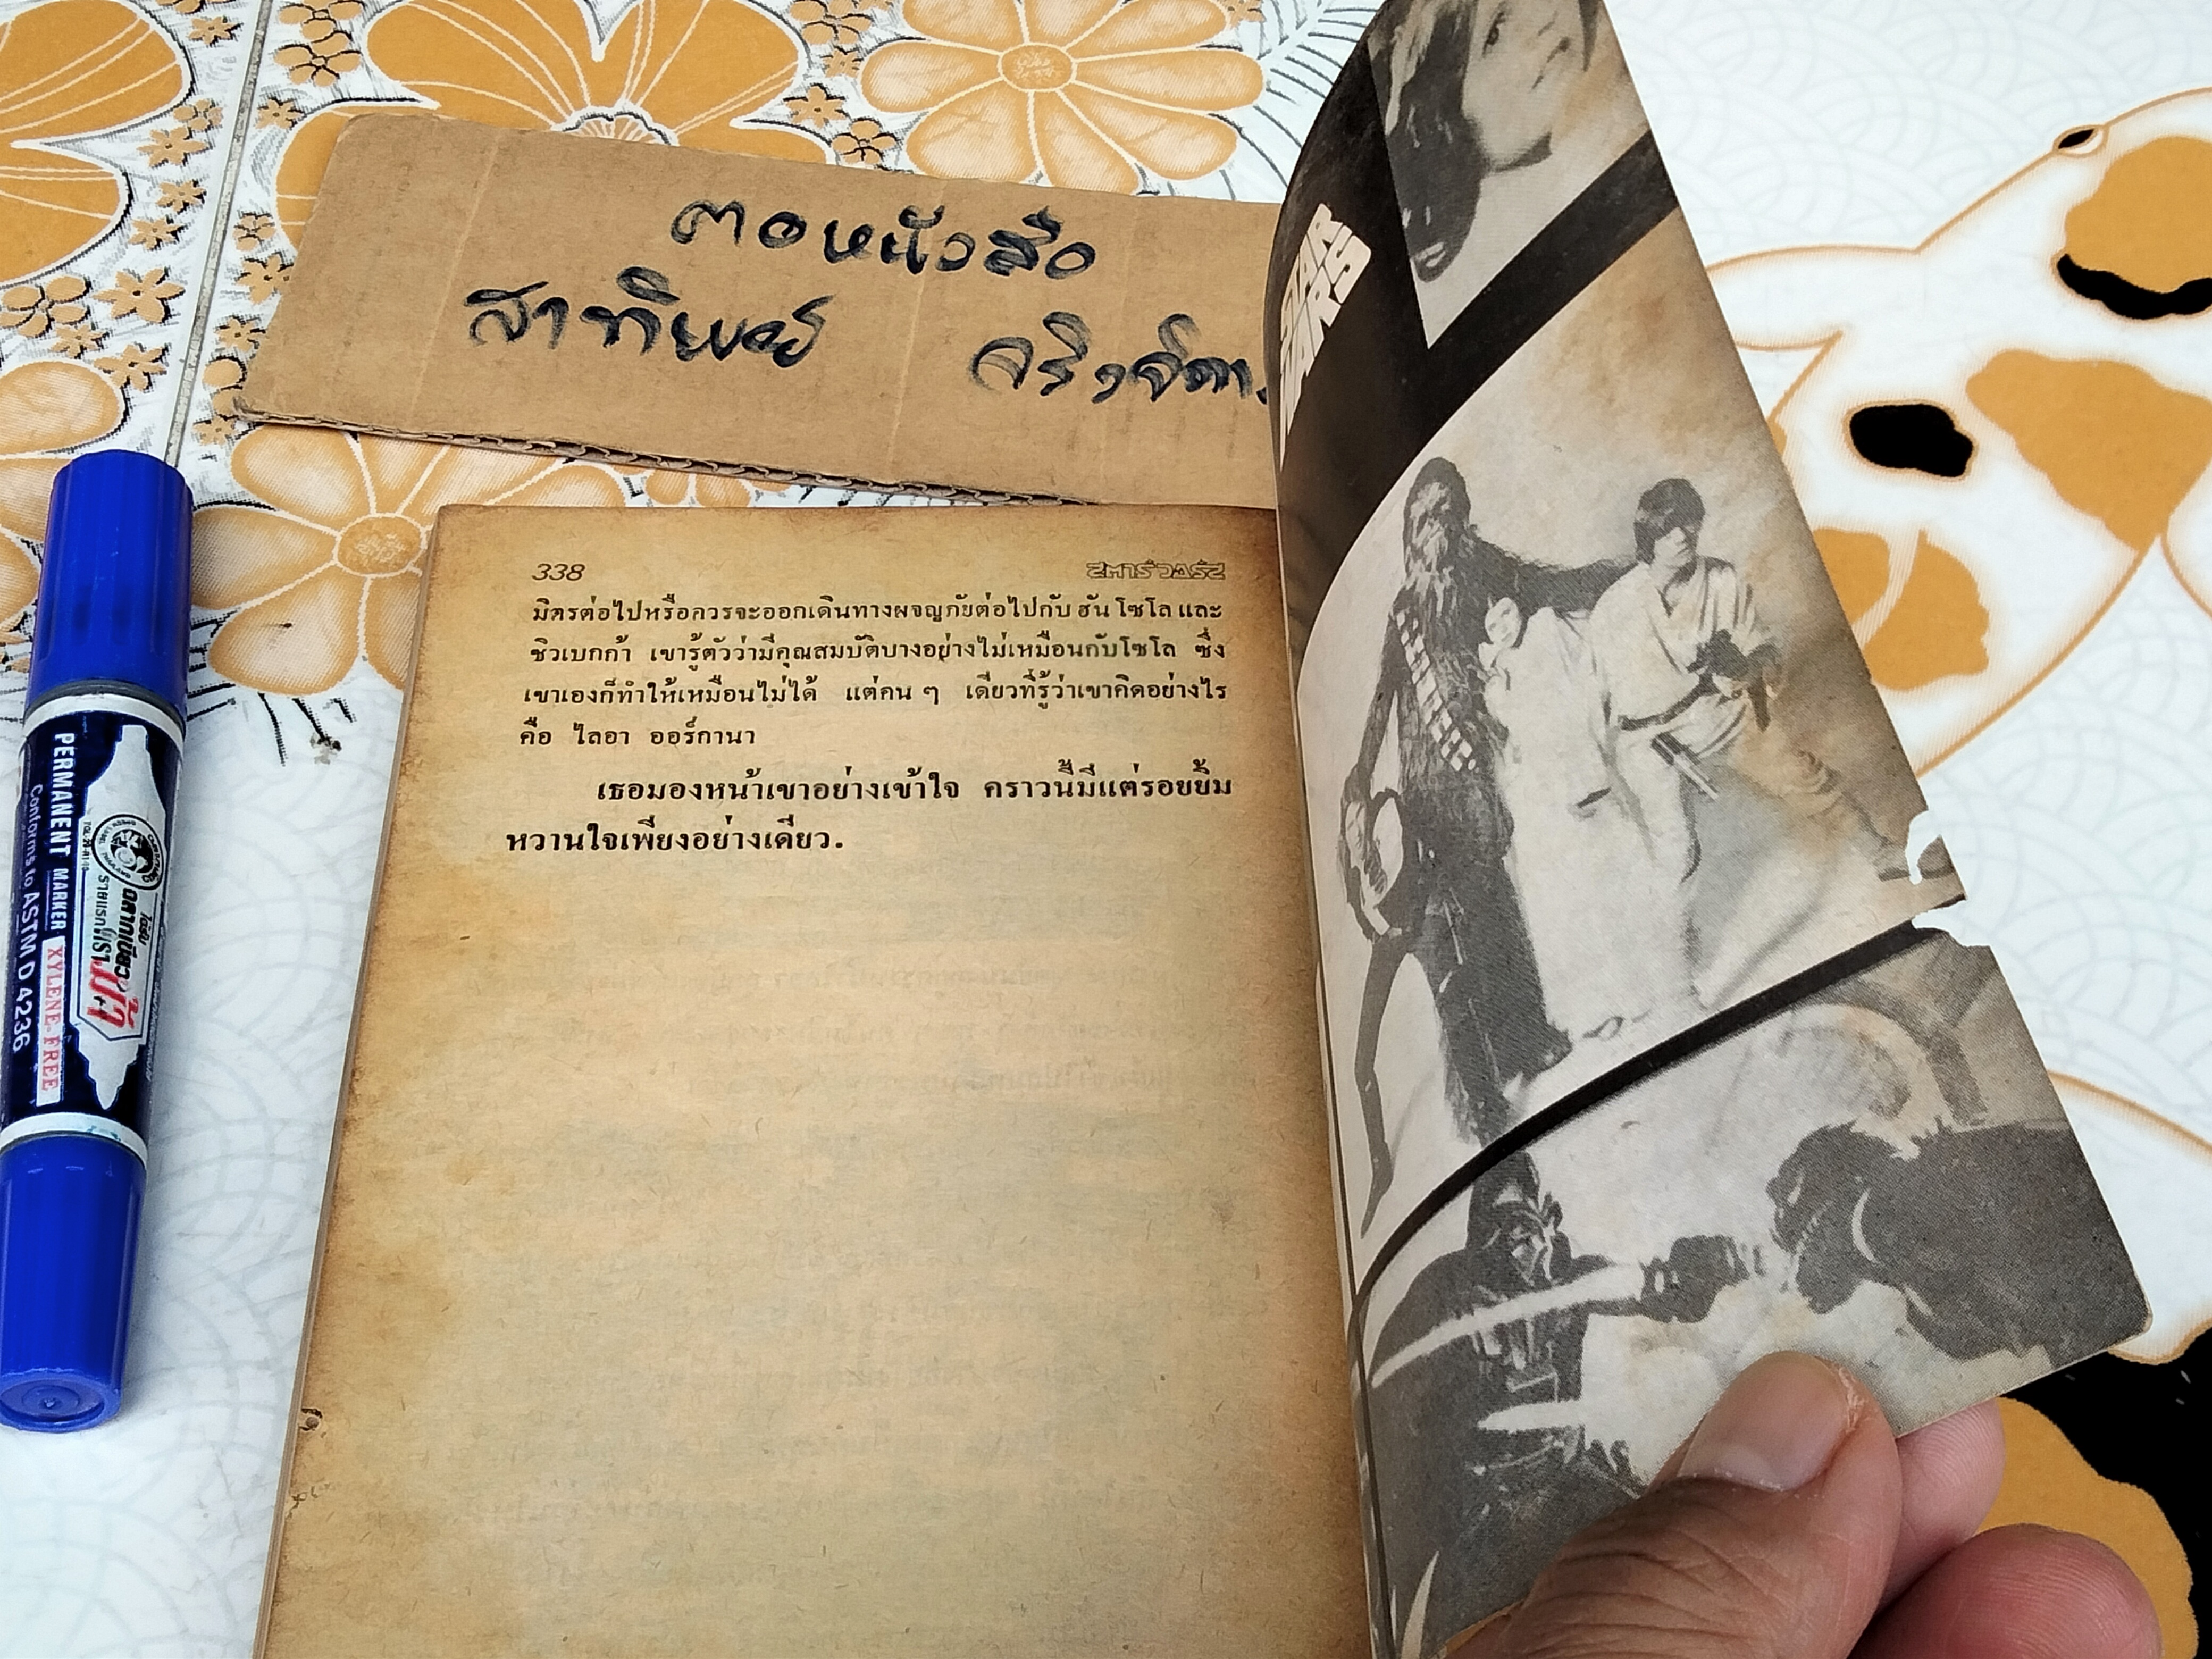 ตอหนังสือ
สาทิพย์
338
สตาร์วอร์ส
มิตรต่อไปหรือควรจะออกเดินทางผจญภัยต่อไปกับ ฮัน โซโล และ
ชิวเบกก้า เขารู้ตัวว่ามีคุณสมบัติบางอย่างไม่เหมือนกับโซโล ซึ่ง
เขาเองก็ทำให้เหมือนไม่ได้ แต่คน ๆ เดียวที่รู้ว่าเขาคิดอย่างไร
คือ ไลอา ออร์กานา
เธอมองหน้าเขาอย่างเข้าใจ คราวนี้มีแต่รอยยิ้ม
หวานใจเพียงอย่างเดียว.
STAR
WARS
PERMANENT MARKER XYLENE-FREE
Conforms to ASTM D 4236
ตราม้า